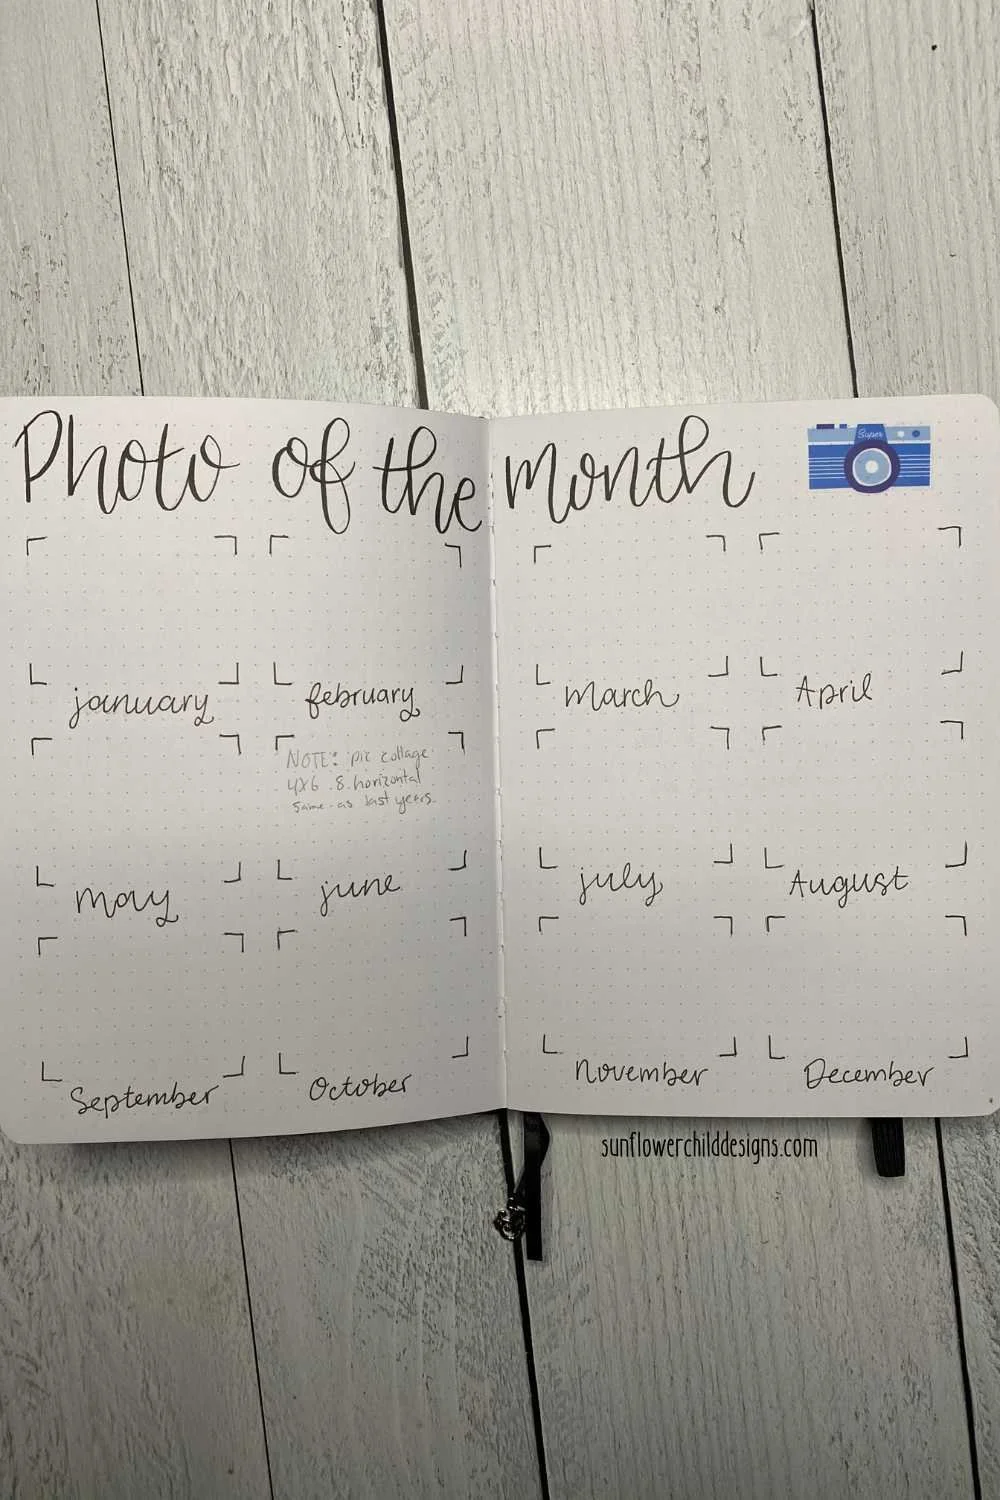 Photo of the month
Super
january
february
march
April
NOTE: pic collage
4x6 8 horizontal
same as last years.
may
june
july
August
September
October
november
December
sunflowerchilddesigns.com